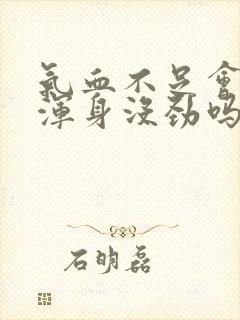 氣血不足會
渾身沒勁嗎
石明磊